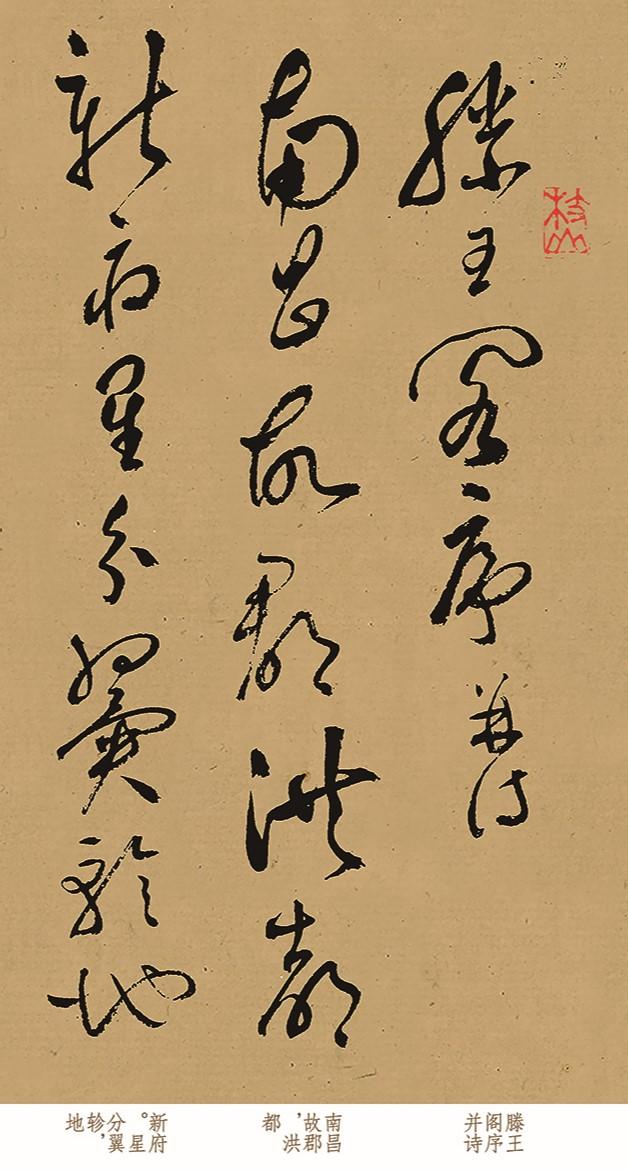 枝山
滕王閣序并詩
南昌故郡洪都
新府星分翼軫地
滕王阁序并诗
南昌故郡，洪都
新府。星分翼轸，地